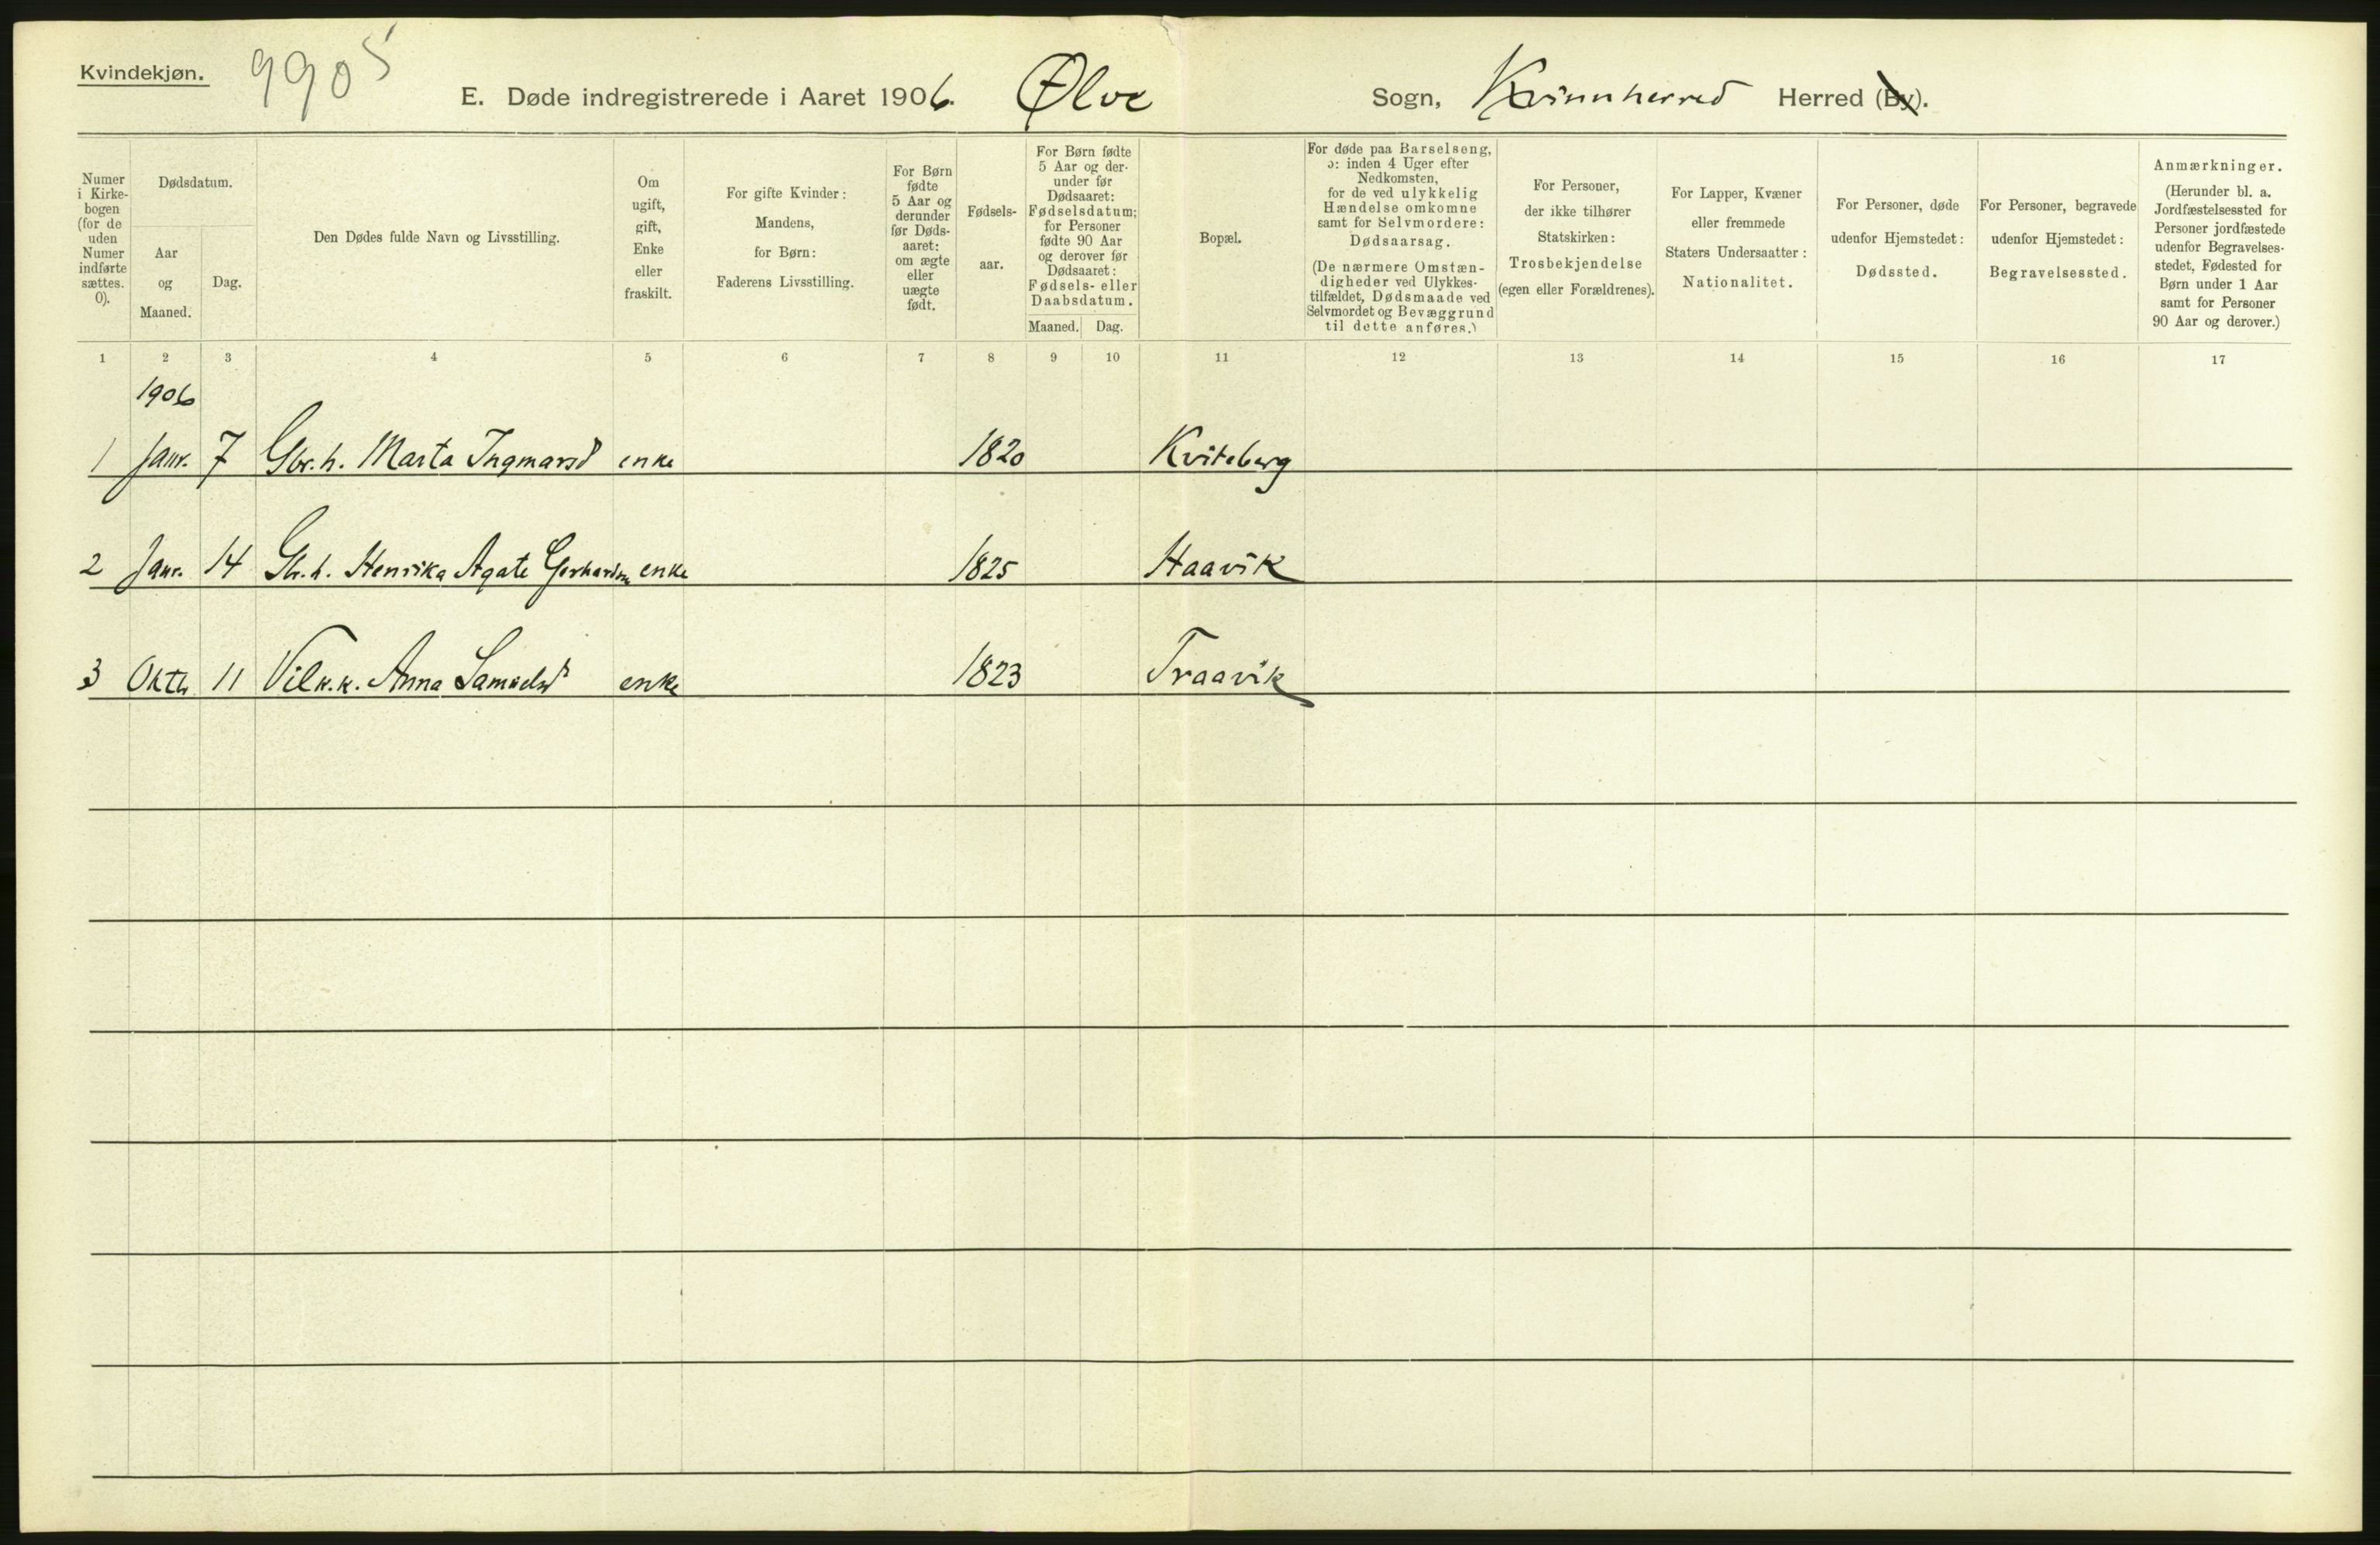 Kvindekjøn.
9905
E. Døde indregistrerede i Aaret 1906. Ølve Sogn, Kvinnherred Herred (By).
Numer i Kirkebogen (for de uden Numer indførte sættes. 0).
Dødsdatum.
Aar og Maaned.
Dag.
Den Dødes fulde Navn og Livsstilling.
Om ugift, gift, Enke eller fraskilt.
For gifte Kvinder: Mandens, for Børn: Faderens Livsstilling.
For Børn fødte 5 Aar og derunder før Døds-aaret: om ægte eller uægte født.
Fødsels-aar.
For Børn fødte 5 Aar og der-under før Dødsaaret: Fødselsdatum; for Personer fødte 90 Aar og derover før Dødsaaret: Fødsels- eller Daabsdatum.
Maaned. Dag.
Bopæl.
For døde paa Barselseng, ɔ: inden 4 Uger efter Nedkomsten, for de ved ulykkelig Hændelse omkomne samt for Selvmordere: Dødsaarsag.
(De nærmere Omstæn-digheder ved Ulykkes-tilfældet, Dødsmaade ved Selvmordet og Bevæggrund til dette anføres.)
For Personer, der ikke tilhører Statskirken: Trosbekjendelse (egen eller Forældrenes).
For Lapper, Kvæner eller fremmede Staters Undersaatter: Nationalitet.
For Personer, døde udenfor Hjemstedet: Dødssted.
For Personer, begravede udenfor Hjemstedet: Begravelsessted.
Anmærkninger.
(Herunder bl. a. Jordfæstelsessted for Personer jordfæstede udenfor Begravelses-stedet, Fødested for Børn under 1 Aar samt for Personer 90 Aar og derover.)
1 2 3 4 5 6 7 8 9 10 11 12 13 14 15 16 17
1906
1 Janr. 7 Gbr.h. Marta Ingmarsd enke 1820 Kviteberg
2 Janr. 14 Henrika Agate enke 1825 Haavik
3 Oktb 11 Anna Samuelsd enke 1823 Traavik